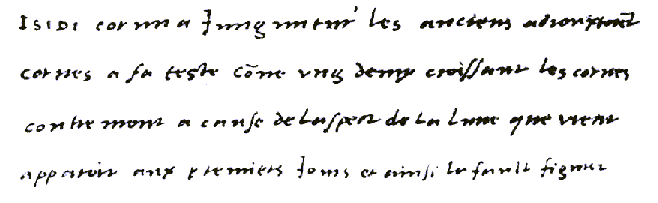 ISIDI cornua Junguntur les anciens adioustoiẽt
cornes a sa teste cõme ung demy croissant les cornes
contre mont a cause de laspect de la lune que vient
apparoir aux premiers Jours et ainsi la fault figurer